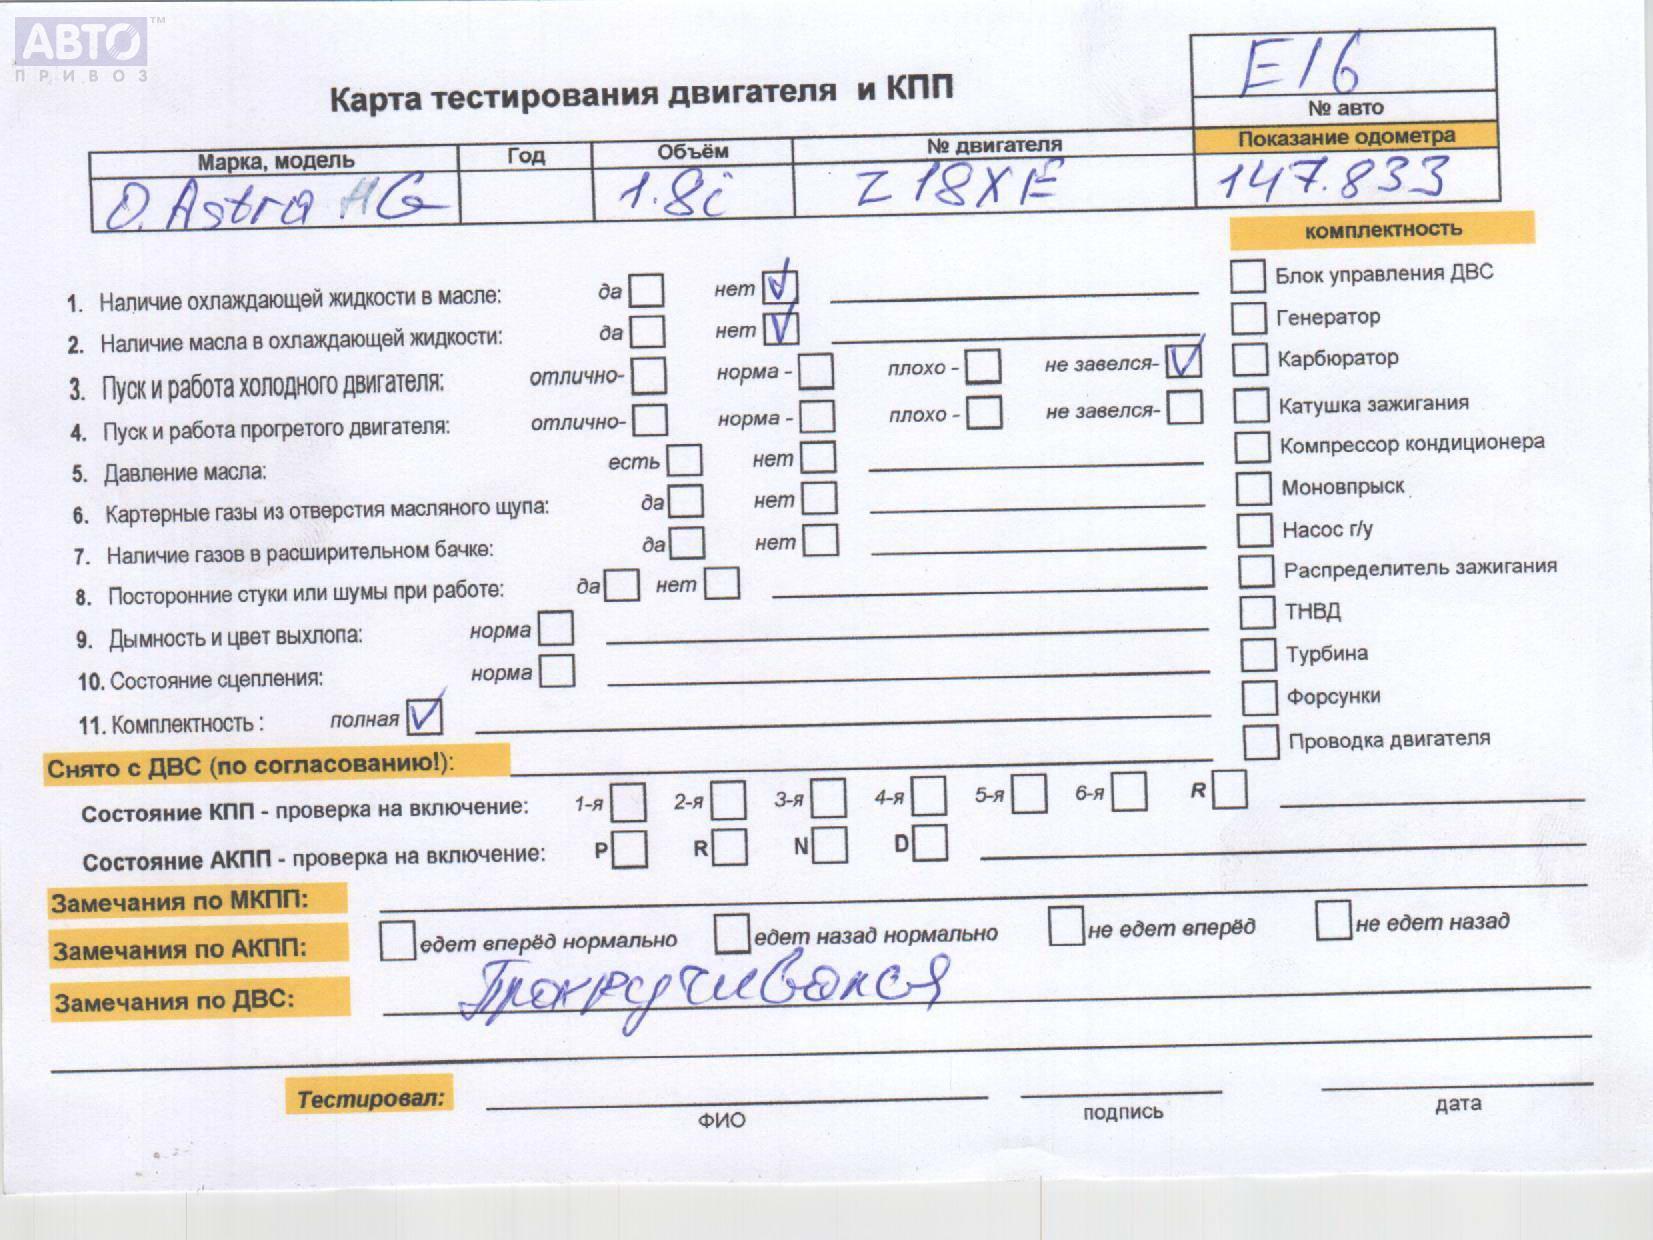 АВТО™
ПРИВОЗ
E16
№ авто
Карта тестирования двигателя и КПП
Показание одометра
Марка, модель Год Объём № двигателя
O. Astra G 1.8i Z18XE 147.833
комплектность
1. Наличие охлаждающей жидкости в масле: да нет
2. Наличие масла в охлаждающей жидкости: да нет
3. Пуск и работа холодного двигателя: отлично- норма - плохо - не завелся-
4. Пуск и работа прогретого двигателя: отлично- норма - плохо - не завелся-
5. Давление масла: есть нет
6. Картерные газы из отверстия масляного щупа: да нет
7. Наличие газов в расширительном бачке: да нет
8. Посторонние стуки или шумы при работе: да нет
9. Дымность и цвет выхлопа: норма
10. Состояние сцепления: норма
11. Комплектность : полная
Блок управления ДВС
Генератор
Карбюратор
Катушка зажигания
Компрессор кондиционера
Моновпрыск
Насос г/у
Распределитель зажигания
ТНВД
Турбина
Форсунки
Проводка двигателя
Снято с ДВС (по согласованию!):
Состояние КПП - проверка на включение: 1-я 2-я 3-я 4-я 5-я 6-я R
Состояние АКПП - проверка на включение: P R N D
Замечания по МКПП:
Замечания по АКПП: едет вперёд нормально едет назад нормально не едет вперёд не едет назад
Замечания по ДВС: Прокручивался
Тестировал:
ФИО подпись дата